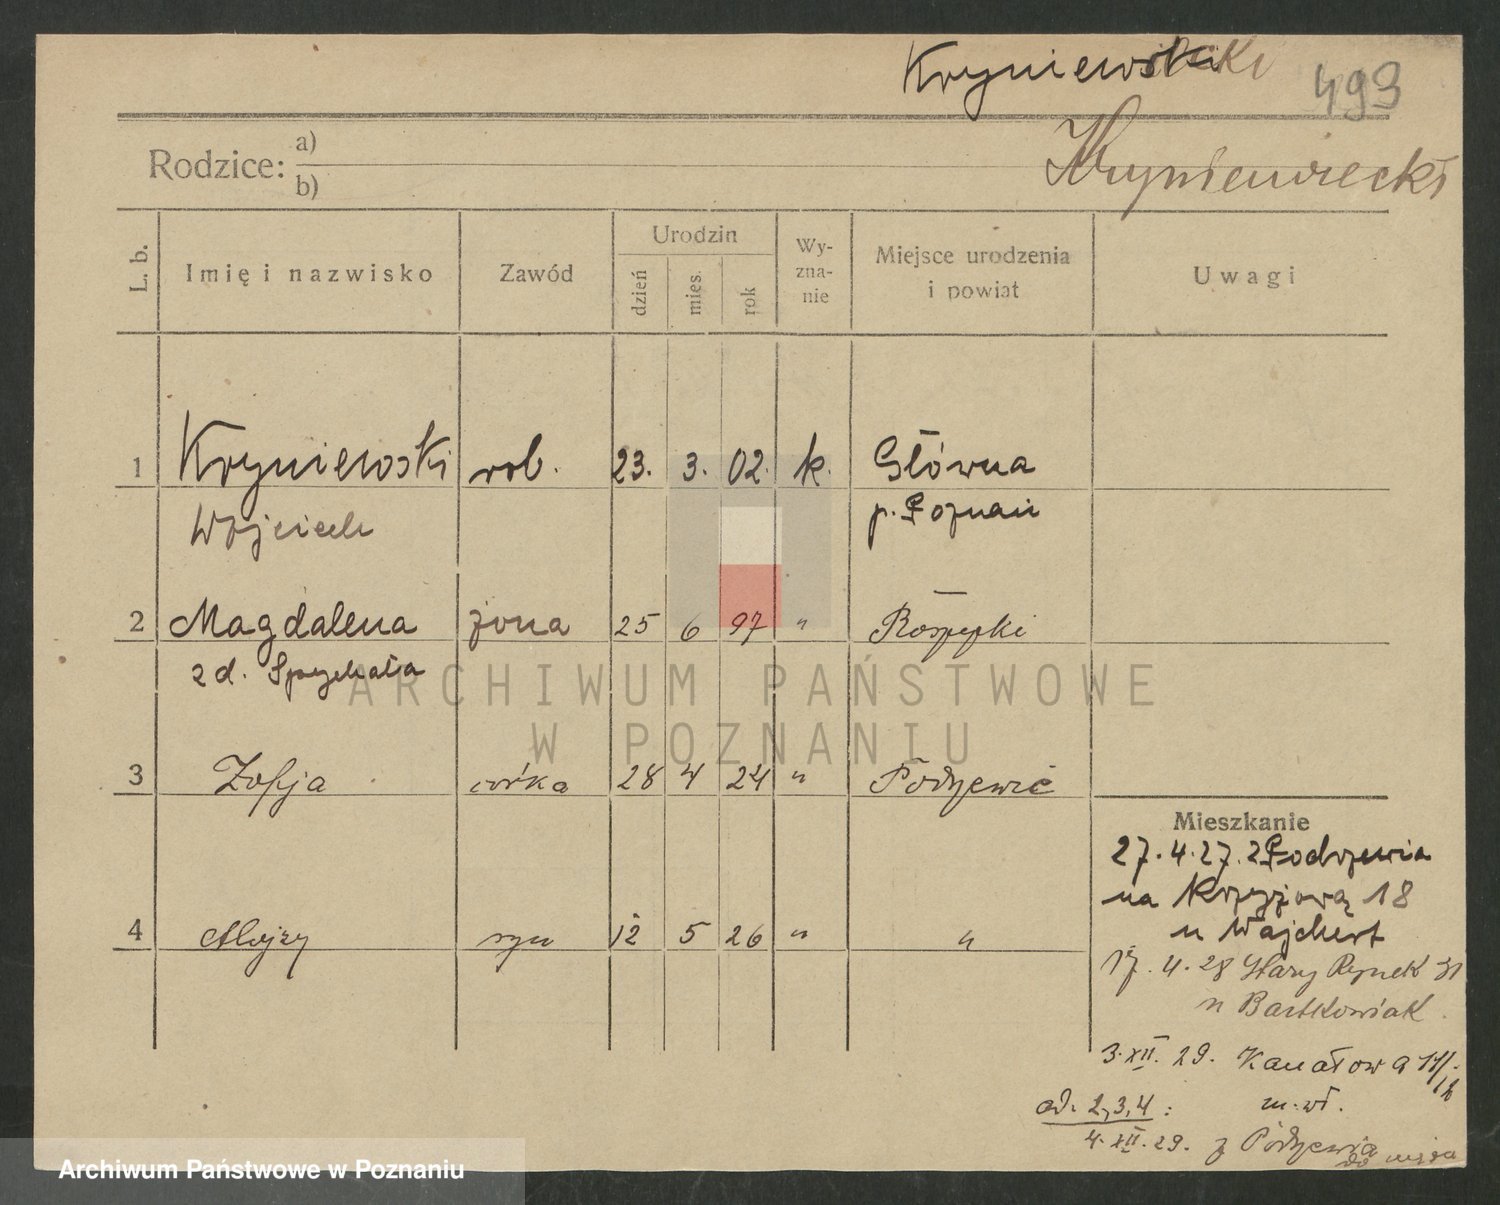 Kryniewski
493
Hryniewiecki
Rodzice: a)
b)
L. b.
Imię i nazwisko
Zawód
Urodzin
dzień
mies.
rok
Wy-
zna-
nie
Miejsce urodzenia
i powiat
Uwagi
1 Kryniewski rob. 23. 3. 02. k. Główna
Wojciech p. Poznań
2 Magdalena żona 25 6 97 "
z d. Spychała
3 Zofja córka 28 4 24 " Podrzewie
4 Alojzy syn 12 5 26 " "
Mieszkanie
27.4.27. z Podrzewia
na Krzyżową 18
u Wajchert
17.4.28 Stary Rynek 31
u Bartkowiak.
3.XII.29. Kanałowa 17/
m. wł.
ad. 2,3,4:
4.XII.29. z Podrzewia
do męża
ARCHIWUM PAŃSTWOWE
W POZNANIU
Archiwum Państwowe w Poznaniu